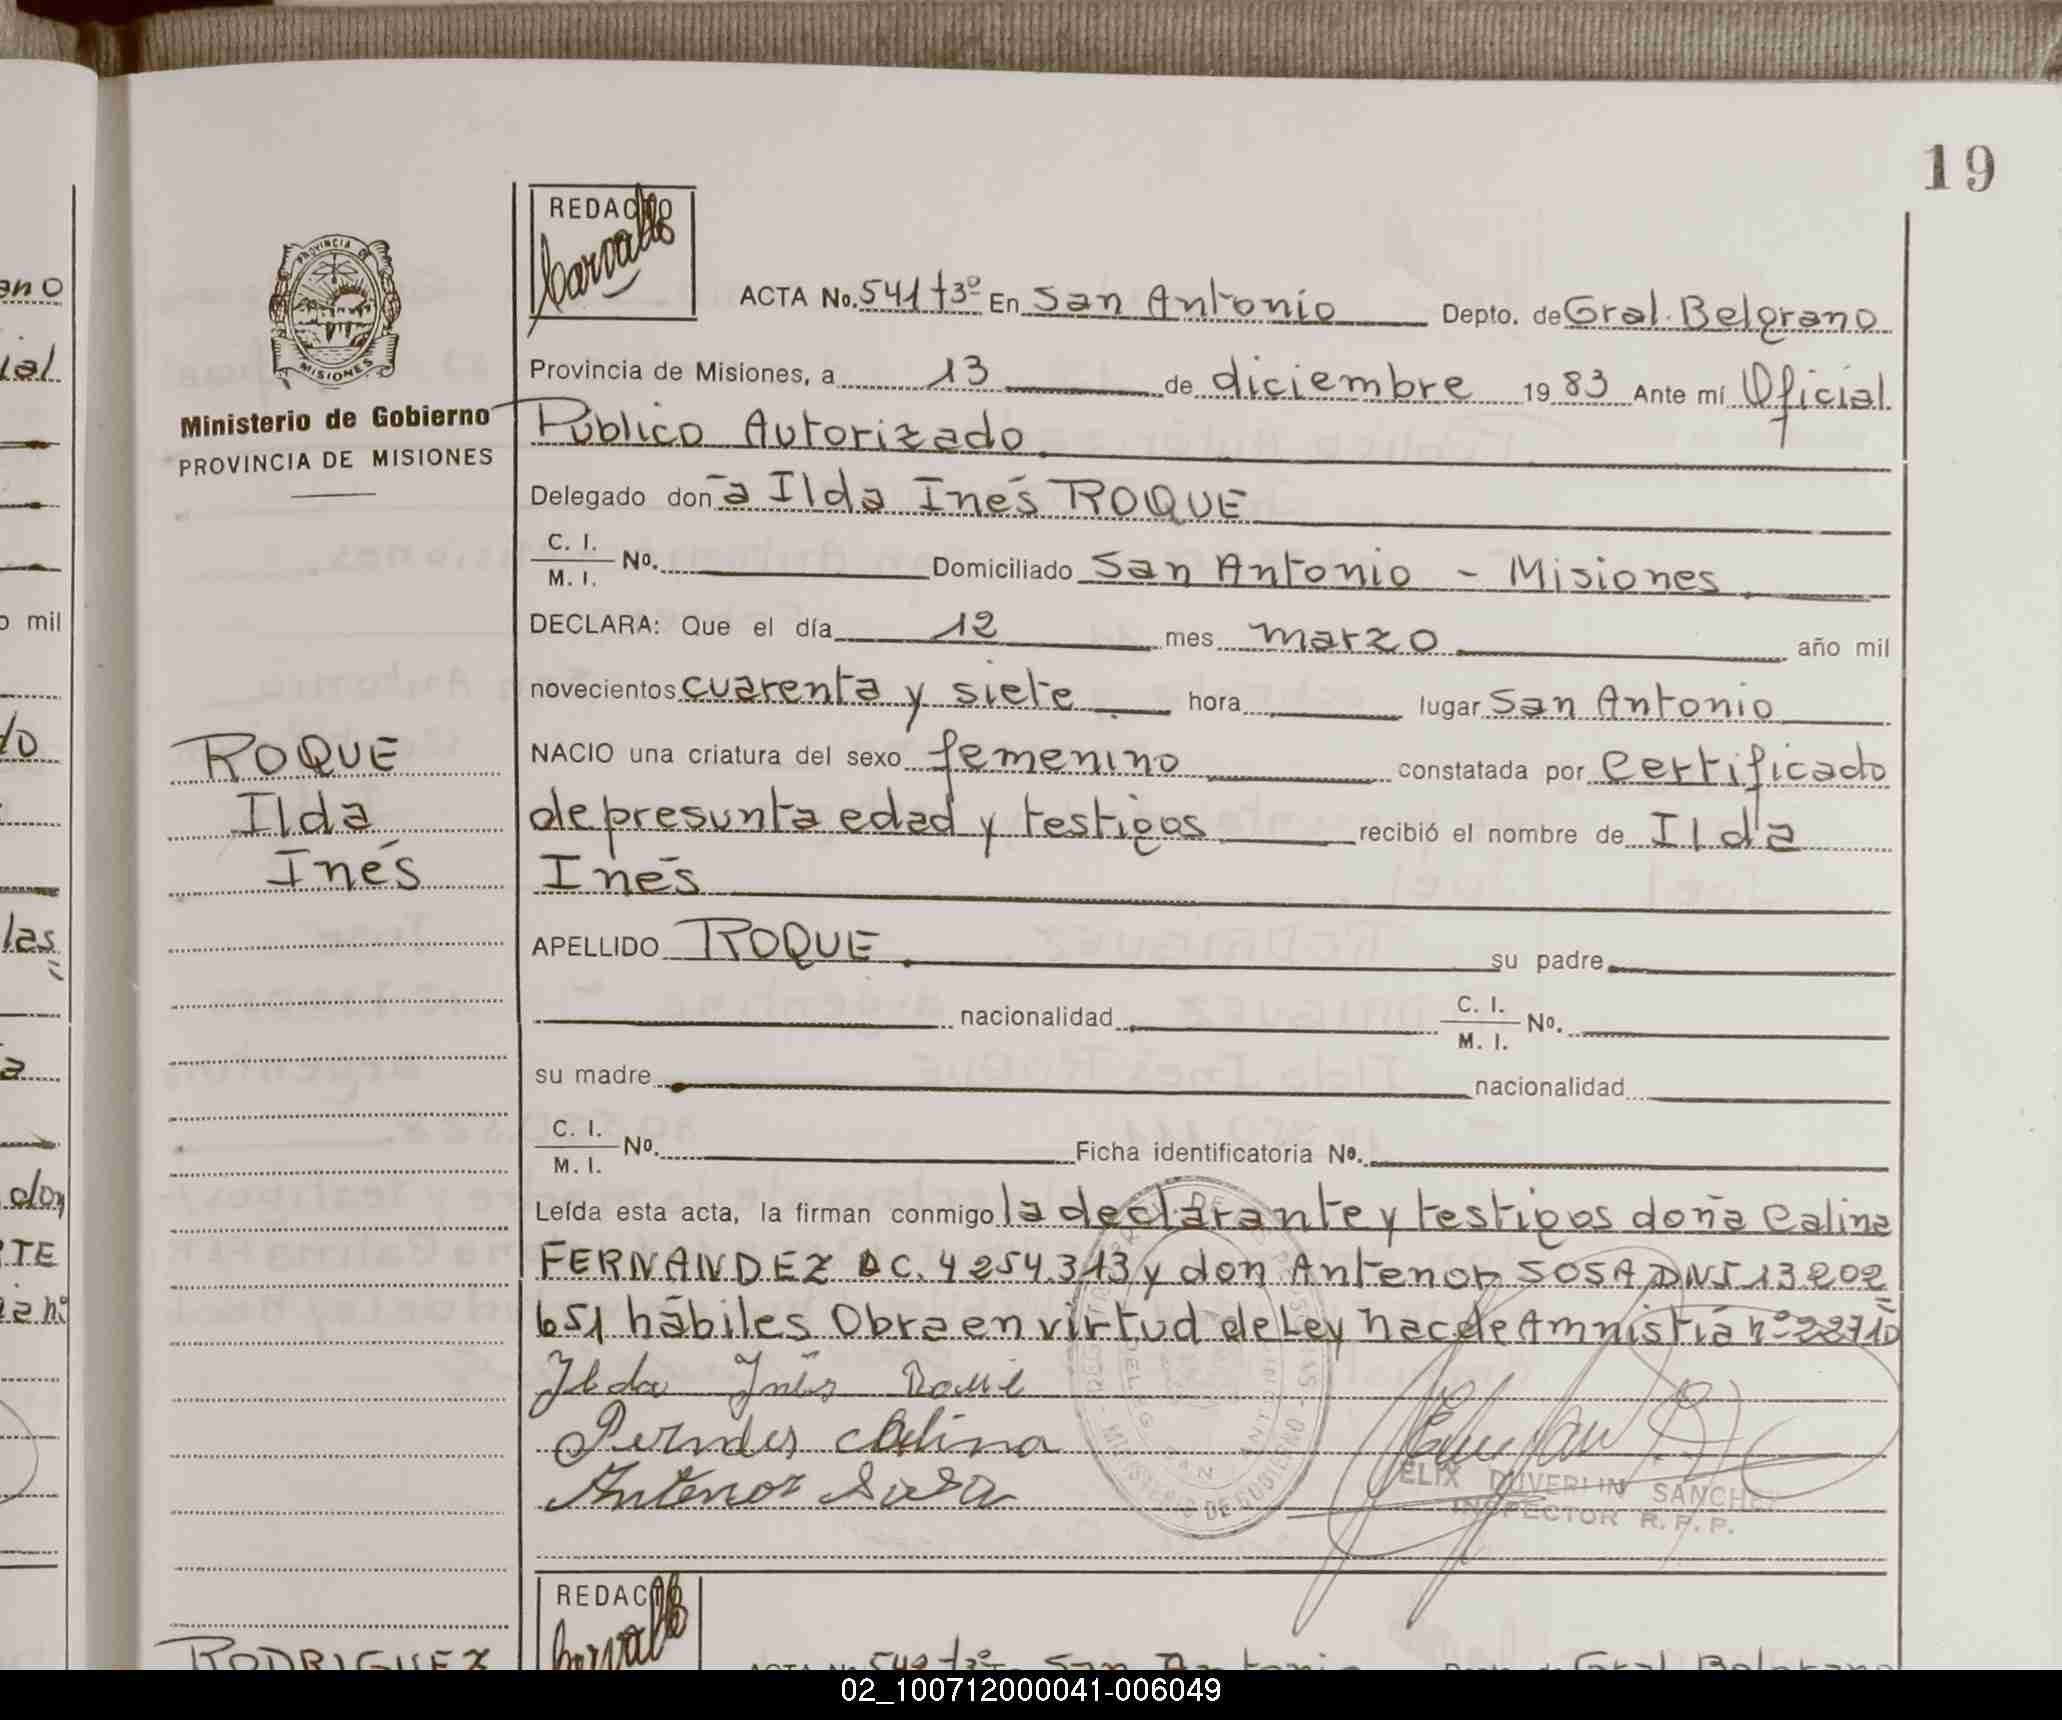 19
REDACTO
Carvallo
PROVINCIA DE
MISIONES
Ministerio de Gobierno
PROVINCIA DE MISIONES
ACTA No. 541 t3º En San Antonio Depto. de Gral. Belgrano
Provincia de Misiones, a 13 de diciembre 1983 Ante mí Oficial
Público Autorizado
Delegado doña Ilda Inés ROQUE
C. I.
M. I. No. Domiciliado San Antonio - Misiones
DECLARA: Que el día 12 mes marzo año mil
novecientos cuarenta y siete hora lugar San Antonio
NACIO una criatura del sexo femenino constatada por Certificado
de presunta edad y testigos recibió el nombre de Ilda
Inés
ROQUE
Ilda
Inés
APELLIDO ROQUE su padre
nacionalidad C. I.
M. I. No.
su madre nacionalidad
C. I.
M. I. No. Ficha identificatoria No.
Leída esta acta, la firman conmigo la declarante y testigos doña Calina
FERNANDEZ DC. 4254.313 y don Antenor SOSA DNI 13202
651 hábiles Obra en virtud de Ley Nac de Amnistía nº 22710
Ilda Inés Roque
Calina
Antenor Sosa
MINISTERIO DE GOBIERNO
ELIX DUVERLIN SANCHEZ
INSPECTOR R. P. P.
REDAC
Carvallo
RODRIGUEZ
ACTA No 542 t3º San Antonio Gral Belgrano
ano
ial
o mil
do
las
a
don
RTE
02_100712000041-006049